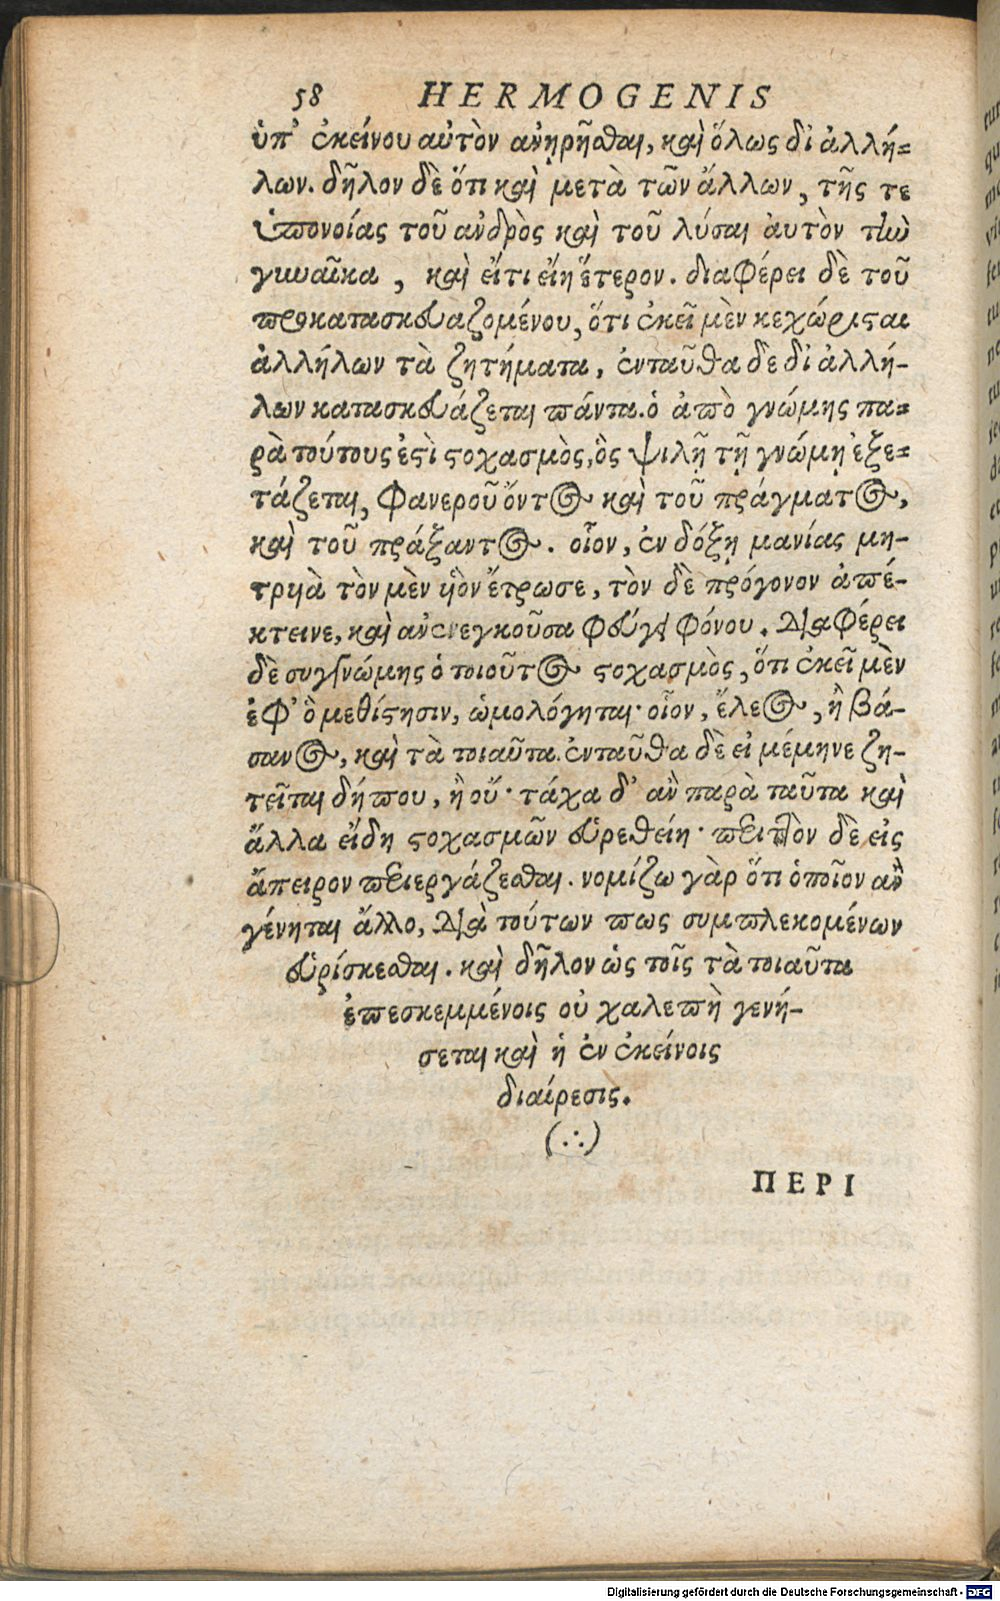 58 HERMOGENIS
ὑπ' ἐκείνου αὐτὸν ἀνῃρῆσθαι, καὶ ὅλως δι' ἀλλή=
λων. δῆλον δὲ ὅτι καὶ μετὰ τῶν ἄλλων, τῆς τε
ὑπονοίας τοῦ ἀνδρὸς καὶ τοῦ λύσαι ἀυτὸν τὴν
γυναῖκα, καὶ εἴτι εἴη ἕτερον. διαφέρει δὲ τοῦ
προκατασκευαζομένου, ὅτι ἐκεῖ μὲν κεχώρισται
ἀλλήλων τὰ ζητήματα, ἐνταῦθα δὲ δι' ἀλλή-
λων κατασκευάζεται πάντα. ὁ ἀπὸ γνώμης πα=
ρὰ τούτους ἐστὶ στοχασμὸς, ὃς ψιλῇ τῇ γνώμῃ ἐξε=
τάζεται, φανεροῦ ὄντος καὶ τοῦ πράγματος,
καὶ τοῦ πράξαντος. οἷον, ἐν δόξῃ μανίας μη-
τρυιὰ τὸν μὲν ὑὸν ἔτρωσε, τὸν δὲ πρόγονον ἀπέ-
κτεινε, καὶ ἀνενεγκοῦσα φεύγει φόνου. Διαφέρει
δὲ συγγνώμης ὁ τοιοῦτος στοχασμὸς, ὅτι ἐκεῖ μὲν
ἐφ' ὃ μεθίστησιν, ὡμολόγηται· οἷον, ἔλεος, ἢ βά-
σανος, καὶ τὰ τοιαῦτα. ἐνταῦθα δὲ εἰ μέμηνε ζη-
τεῖται δήπου, ἢ οὔ· τάχα δ' ἂν παρὰ ταῦτα καὶ
ἄλλα εἴδη στοχασμῶν εὑρεθείη· περιττὸν δὲ εἰς
ἄπειρον περιεργάζεσθαι. νομίζω γὰρ ὅτι ὁποῖον ἂν
γένηται ἄλλο, Διὰ τούτων πως συμπλεκομένων
εὑρίσκεσθαι. καὶ δῆλον ὡς τοῖς τὰ τοιαῦτα
ἐπεσκεμμένοις οὐ χαλεπὴ γενή-
σεται καὶ ἡ ἐν ἐκείνοις
διαίρεσις.
(∴)
ΠΕΡΙ
Digitalisierung gefördert durch die Deutsche Forschungsgemeinschaft - DFG